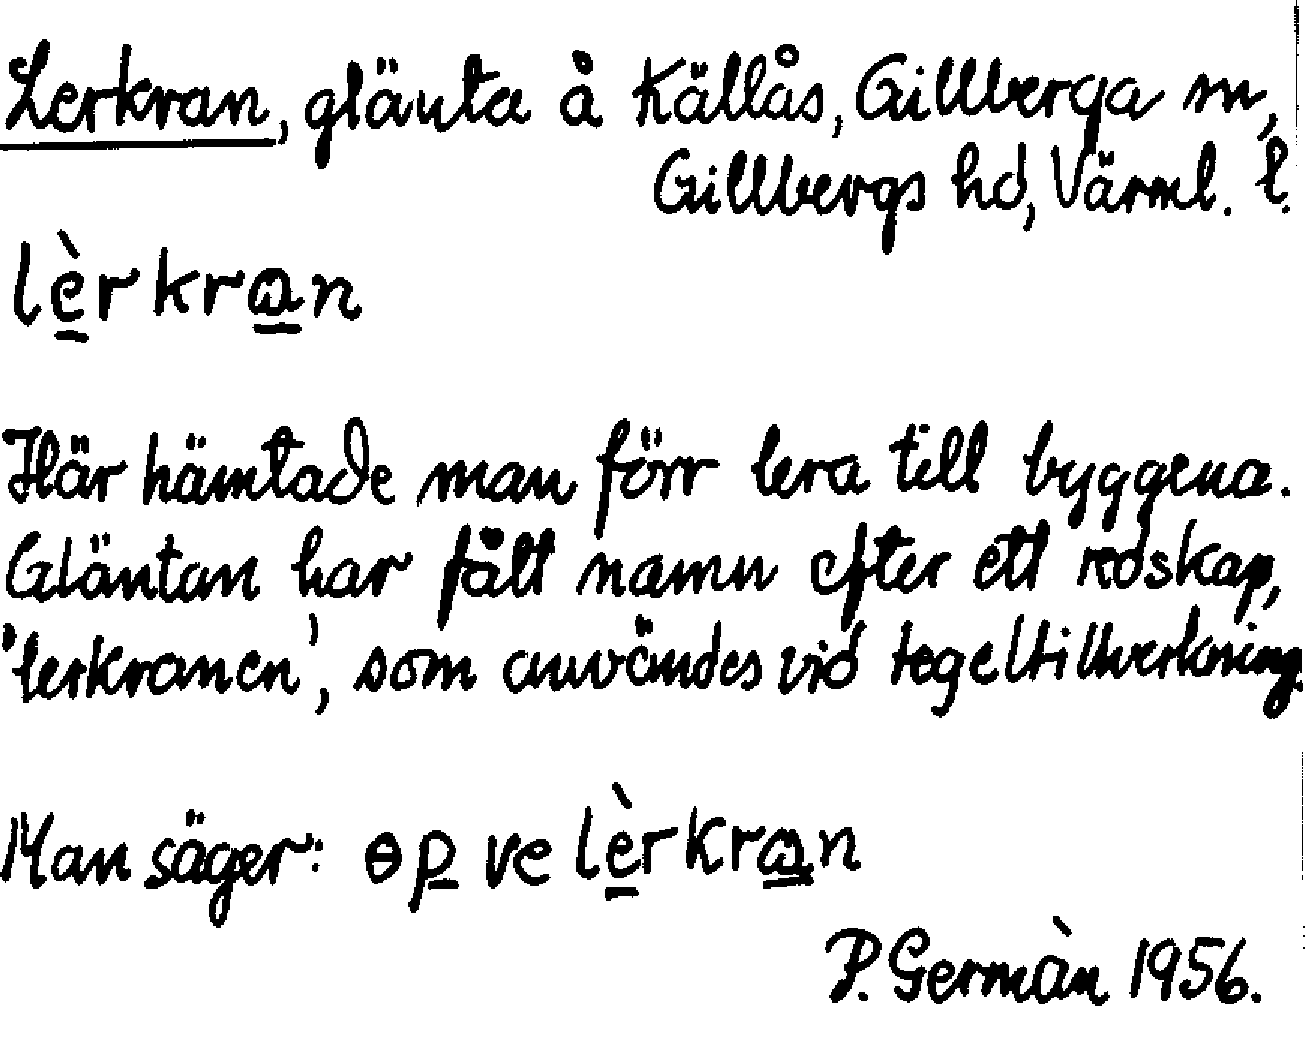 Lerkran, glänta å Källås, Gillberga sn,
Gillbergs hd, Värml. l.
lèrkran
Här hämtade man förr lera till byggena.
Gläntan har fått namn efter ett redskap,
'lerkranen', som användes vid tegeltillverkning.
Man säger: ɵp ve lèrkran
P. Germàn 1956.